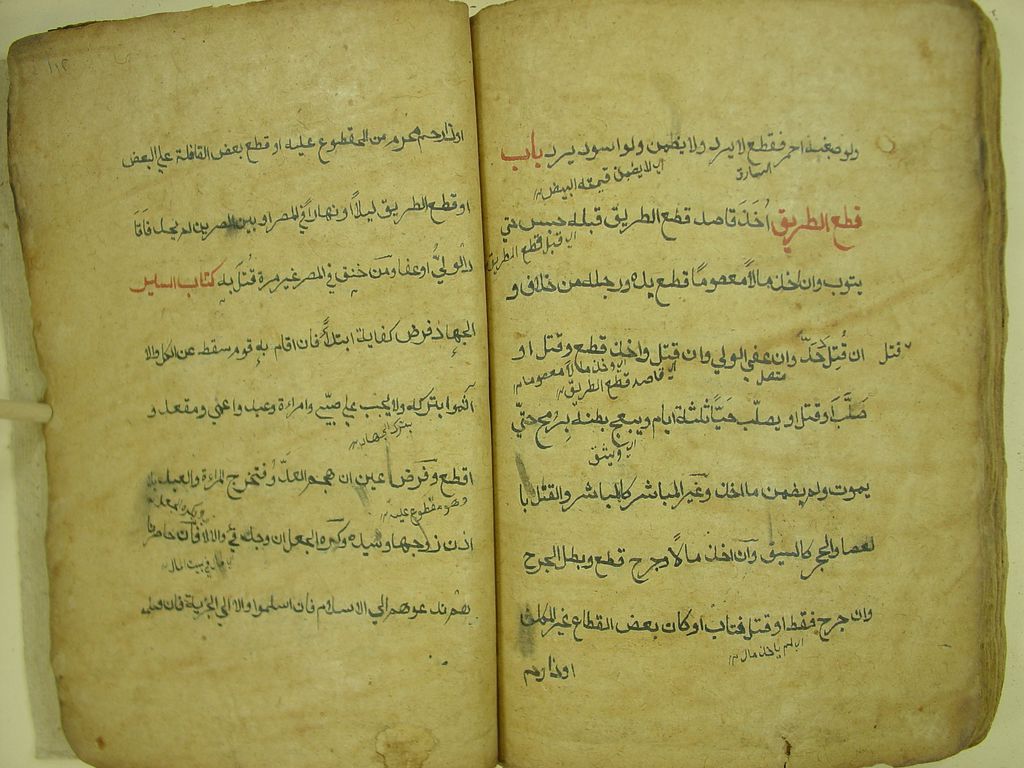 ولو صبغه احمر فقطع لا يرد ولا يضمن ولو اسود يرد باب
السارق
اي لا يضمن قيمته البيض
قطع الطريق أُخذ قاصد قطع الطريق قبله حبس حتي
اي قبل قطع الطريق
يتوب وان اخذ مالاً معصوماً قطع يده ورجله من خلاف و
ان قُتِل حَدّ وان عفي الولي وان قتل واخذ قطع وقتل او
قتل
متصل
اي وخذ مالا معصوما
اي قاصد قطع الطريق
صَلّب وقتل او يصلّب حَيّاً ثلثة ايام ويبعج بطنه بِرُمح حتّي
اي ويشق
يموت ولم يضمن ما اخذ وغير المباشر كالمباشر والقتل با
لعصا والحجر كالسيف وان اخذ مالاً وجرح قطع وبطل الجرح
وان جرح فقط او قتل فتاب او كان بعض القطاع غير المكلف
اي لم ياخذ مال
او ذا رحم
١١٢
او ذا رحم محرم من المقطوع عليه او قطع بعض القافلة علي البعض
او قطع الطريق ليلاً او نهاراً في المصر او بين المصرين لم يحد فاقا
د الوليُّ او عفا ومن خنق في المصر غير مرة قُتل به كتاب السير
الجهاد فرض كفاية ابتداءً فان اقام به قوم سقط عن الكل والا
اثموا بتركه ولا يجب علي صبيّ وامراءة وعبد واعمي ومقعد و
بترك الجهاد
اقطع وفرض عين ان هجم العدُّو فتخرج المراءة والعبد بلا
وهو مقطوع عليه
اذن زوجها وسيده وكره الجعل ان وجد فئ والا لا فان حاصرنا
مال في بيت المال
هم ندعوهم الي الاسلام فان اسلموا والا الي الجزية فان قبلو